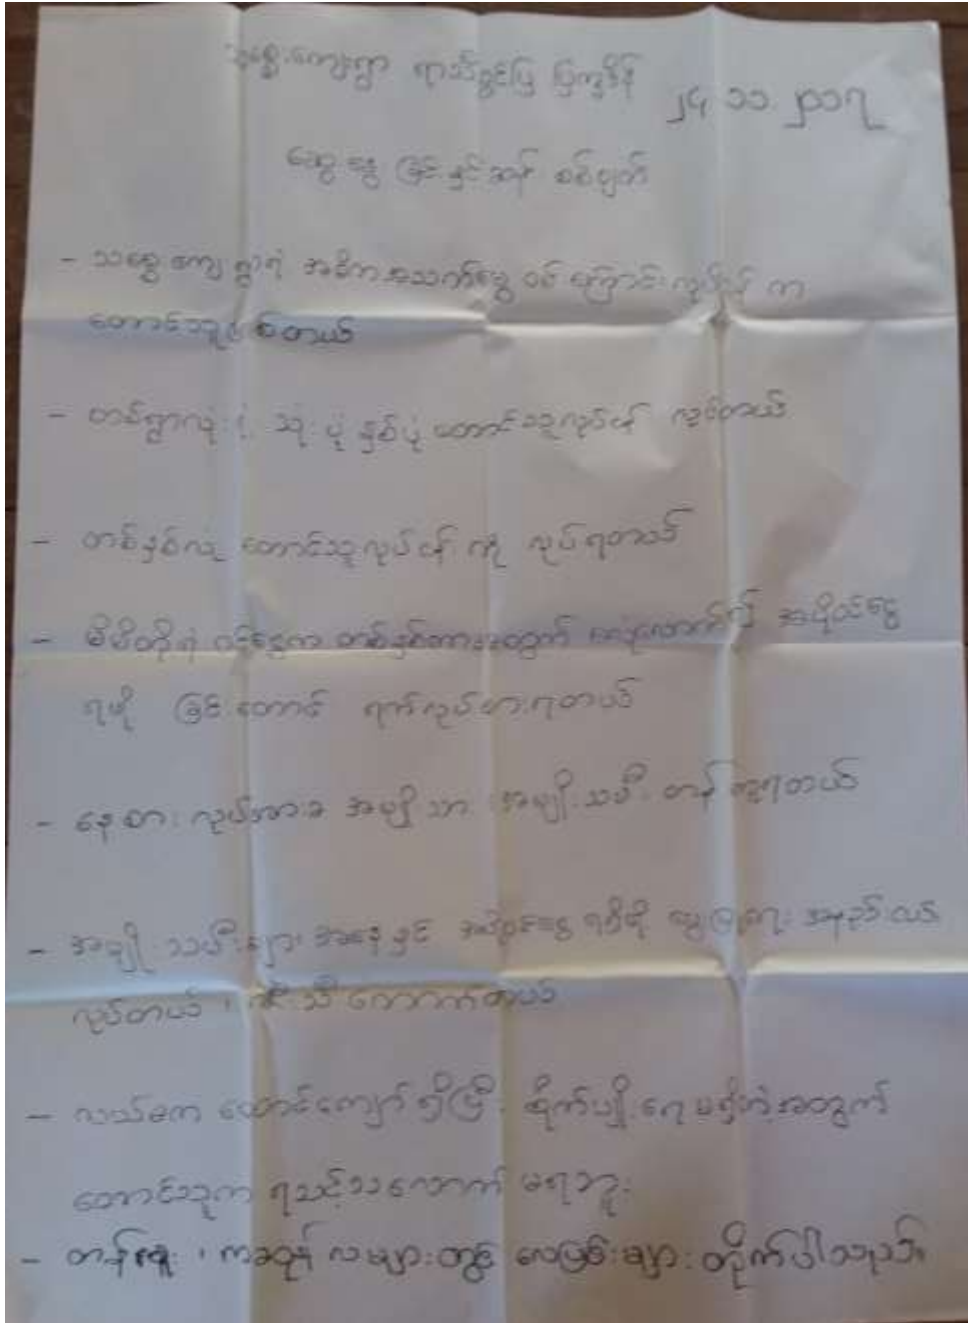 သရွေးကျေးရွာ ရာသီခွင်ပြ ပြက္ခဒိန် ၂၄.၁၁.၂၀၁၇
ဆွေးနွေး ခြင်းနှင့်ဆန်း စစ်ချက်
- သရွေးကျေးရွာရဲ့ အဓိကအသက်မွေးဝမ်းကြောင်းလုပ်ငန်း က
တောင်သူဖြစ်တယ်
- တစ်ရွာလုံးရဲ့ သုံးပုံ နှစ်ပုံ တောင်သူလုပ်ငန်း လုပ်တယ်
- တစ်နှစ်လုံး တောင်သူလုပ်ငန်း ကို လုပ်ရတယ်
- မိမိတို့ရဲ့ ဝင်ငွေက တစ်နှစ်တာအတွက် အပိုဝင်ငွေ
ရဖို့ ခြင်းတောင်း ရက်လုပ်စားရတယ်
- နေ့စား လုပ်အားခ အမျိုးသား အမျိုးသမီး တန်းတူရတယ်
- အမျိုးသမီးများ အနေနှင့် အပိုဝင်ငွေ ရရှိဖို့ မွေးမြူရေး အနည်းငယ်
လုပ်တယ် ၊ ကောက်တယ်
- လယ်မက ယောင်ကျော် ရှိပြီး စိုက်ပျိုးရေ မရှိတဲ့အတွက်
တောင်သူက ရသင့်သလောက် မရဘူး
- တန်ခူး ၊ ကဆုန် လများတွင် လေပြင်းများ တိုက်ပါသည်။